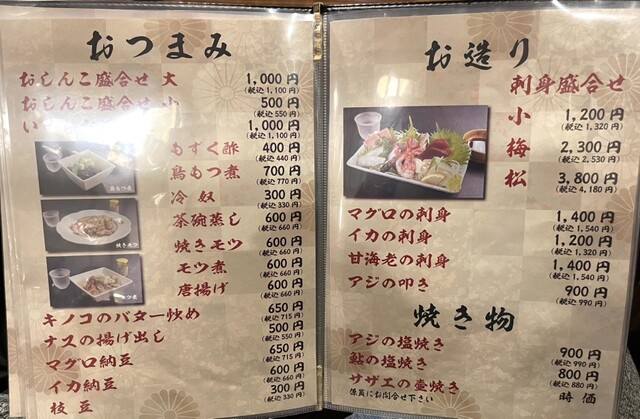 おつまみ
おしんこ盛合せ 大 1,000円 (税込1,100円)
おしんこ盛合せ 小 500円 (税込550円)
1,000円 (税込1,100円)
もずく酢 400円 (税込440円)
鳥もつ煮 700円 (税込770円)
冷奴 300円 (税込330円)
茶碗蒸し 600円 (税込660円)
焼きモツ 600円 (税込660円)
モツ煮 600円 (税込660円)
唐揚げ 600円 (税込660円)
キノコのバター炒め 650円 (税込715円)
ナスの揚げ出し 500円 (税込550円)
マグロ納豆 650円 (税込715円)
イカ納豆 600円 (税込660円)
枝豆 300円 (税込330円)
鳥もつ煮
焼きモツ
モツ煮
お造り
刺身盛合せ
小 1,200円 (税込1,320円)
梅 2,300円 (税込2,530円)
松 3,800円 (税込4,180円)
マグロの刺身 1,400円 (税込1,540円)
イカの刺身 1,200円 (税込1,320円)
甘海老の刺身 1,400円 (税込1,540円)
アジの叩き 900円 (税込990円)
焼き物
アジの塩焼き 900円 (税込990円)
鮎の塩焼き 800円 (税込880円)
サザエの壷焼き 時価
係員にお問合せ下さい